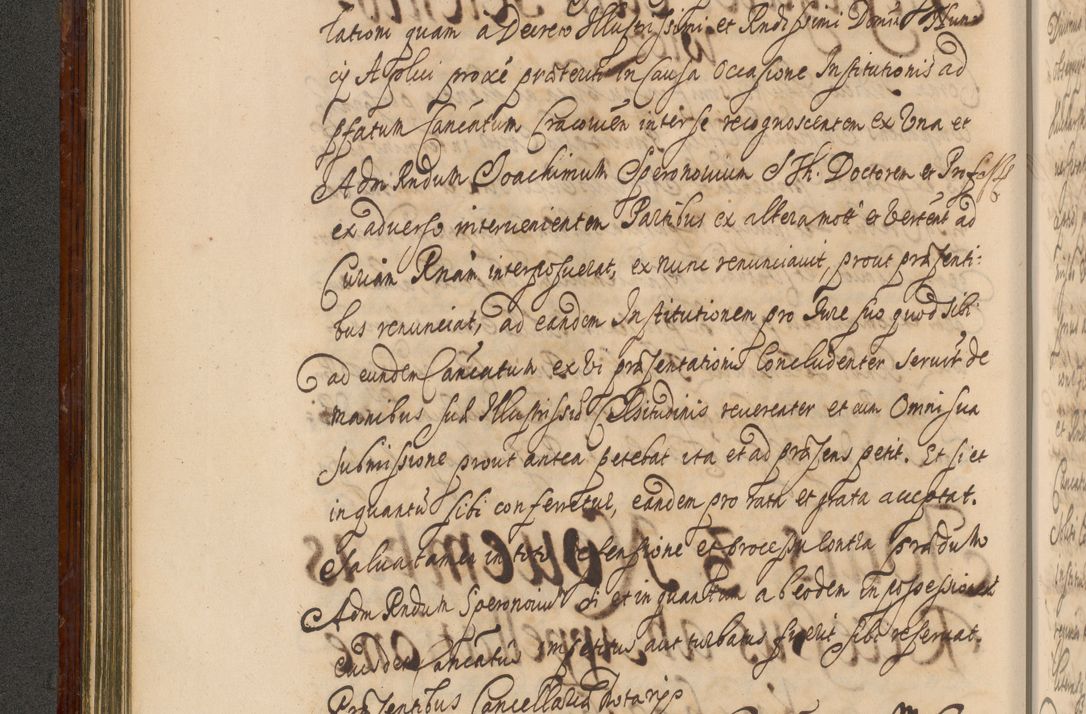 lationi quam a Decreto Illustrissimi et Rndissimi Domini Nun
cij Aplici proxé præteriti in Causa Occasione Institutionis ad
pfatum Cancatum Cracovien inter se recognoscentem ex Vna et
Adm Rndum Joachimum Speronowium S Th. Doctorem et Profess
ex adverso intervenientem Partibus ex altera mott et Vertent ad
Curiam Rnam interposuerat, ex nunc renunciavit, prout præsenti:
bus renunciat, ad eandem Institutionem pro Jure suo quod sibi
ad eundem Cancatum ex vi præsentationis concludenter servit de
manibus sua Illustrissæ Celsitudinis reverenter et cum Omni sua
submissione prout antea petebat ita et ad præsens petit. Et si et
inquantum sibi conferretur, eandem pro rata et grata acceptat.
Salva tamen in toto defensione et processu contra prædum
Adm Rndum Speronoium si et inquantum ab eodem in possessione
eiusdem Cancatus impetitus aut turbatus fuerit sibi reservat.
Præsentibus Cancellariæ Notarijs